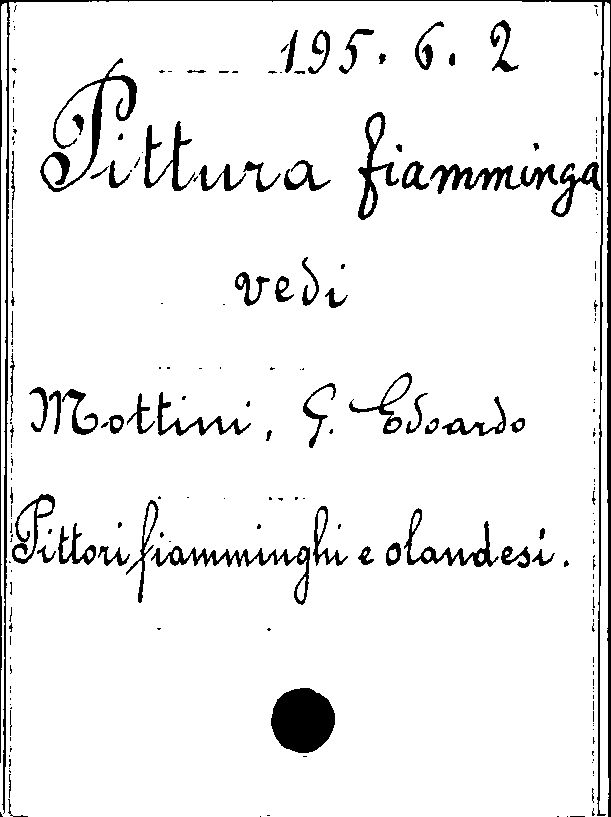 195. 6. 2
Pittura fiamminga
vedi
Mottini, G. Edoardo
Pittori fiamminghi e olandesi.